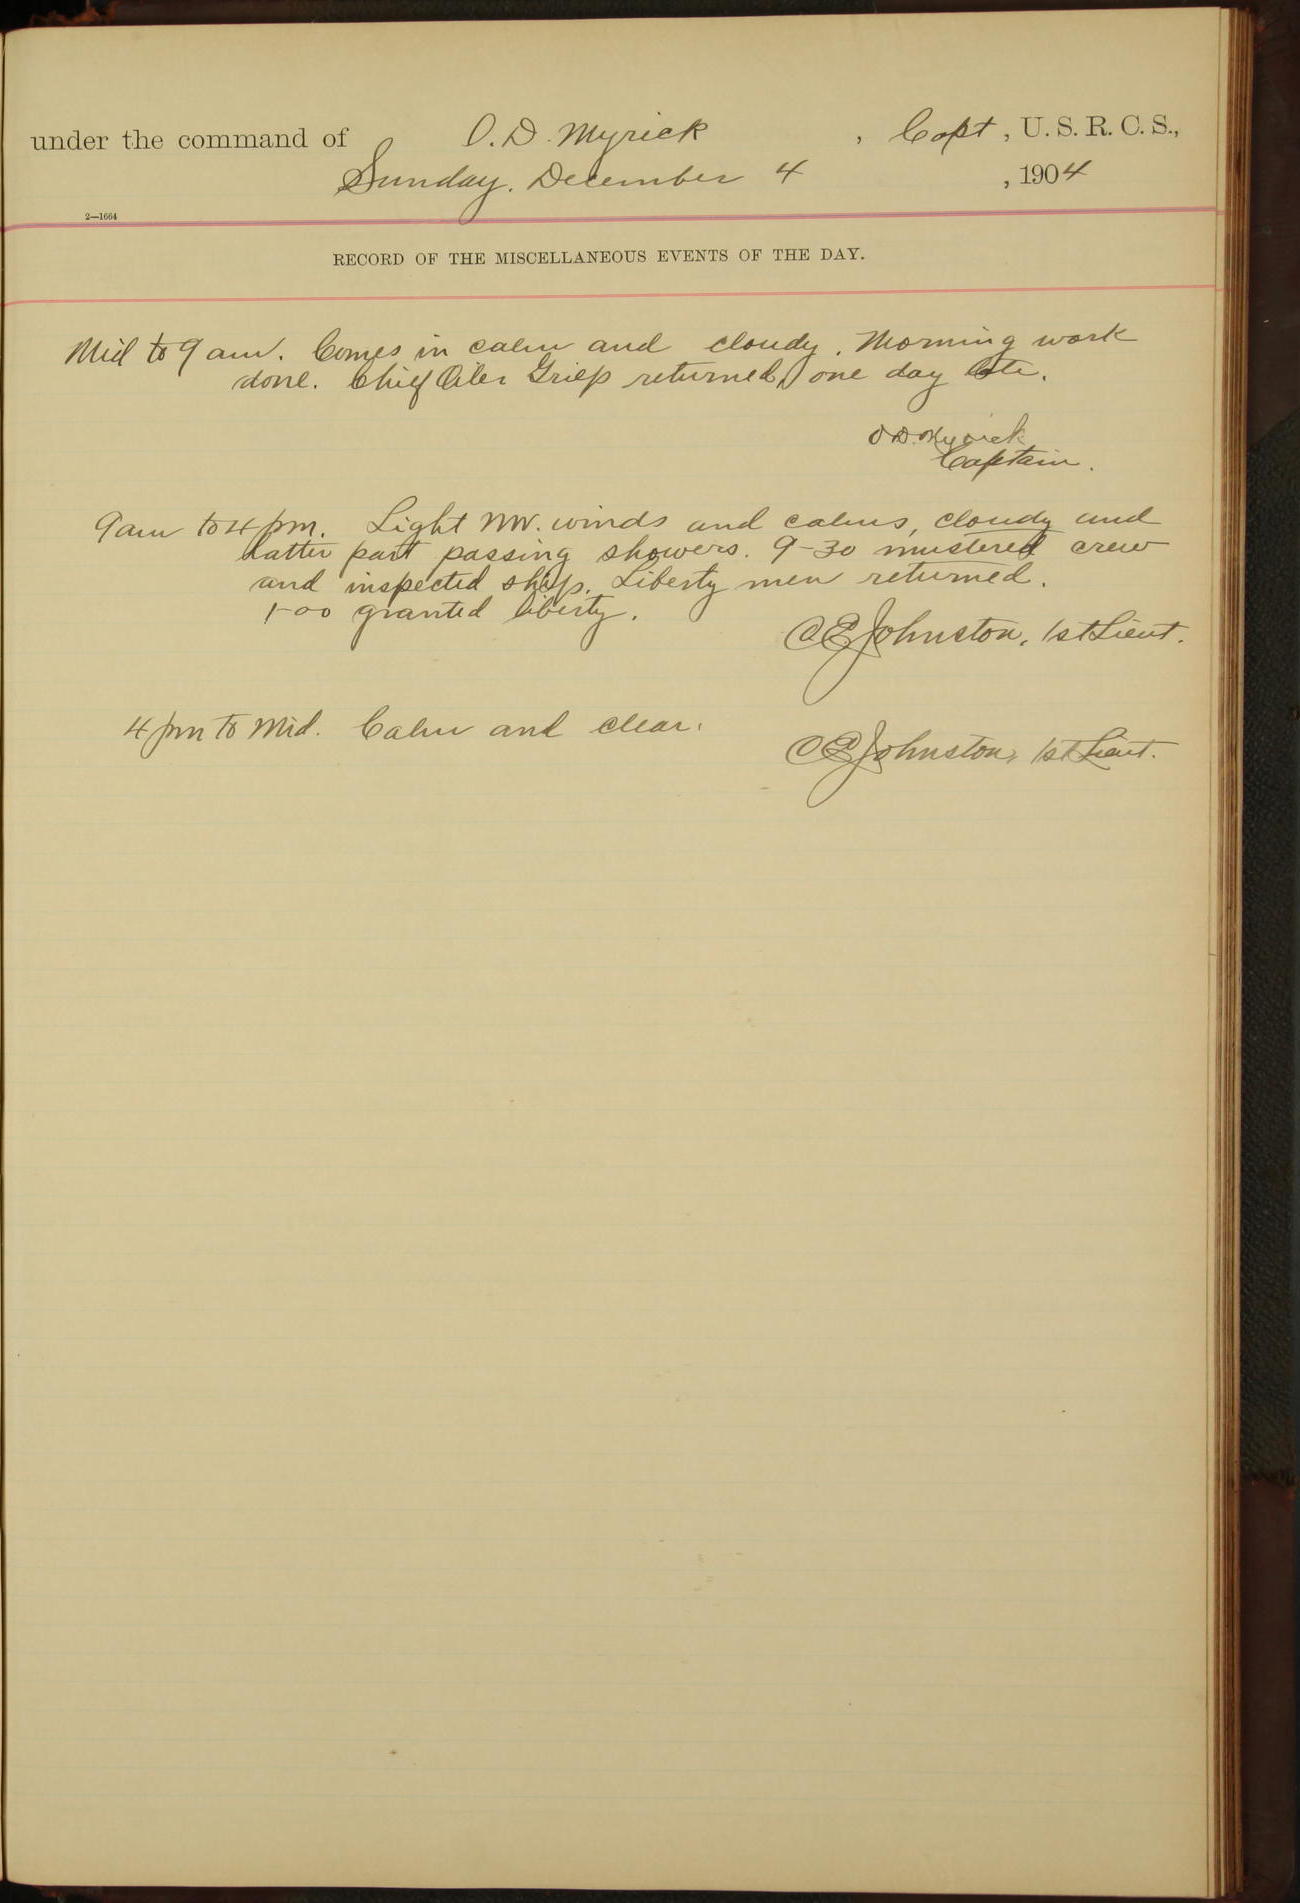 under the command of O. D. Myrick, Capt, U. S. R. C. S.,
Sunday. December 4, 1904
2—1664
RECORD OF THE MISCELLANEOUS EVENTS OF THE DAY.
Mid to 9 am. Comes in calm and cloudy. Morning work
done. Chief Oiler Griep returned, one day late.
O D. Myrick
Captain.
9 am to 4 pm. Light NW. winds and calms, cloudy and
latter part passing showers. 9-30 mustered crew
and inspected ship. Liberty men returned.
1-00 granted liberty.
C E Johnston, 1st Lieut.
4 pm to Mid. Calm and clear.
C E Johnston, 1st Lieut.